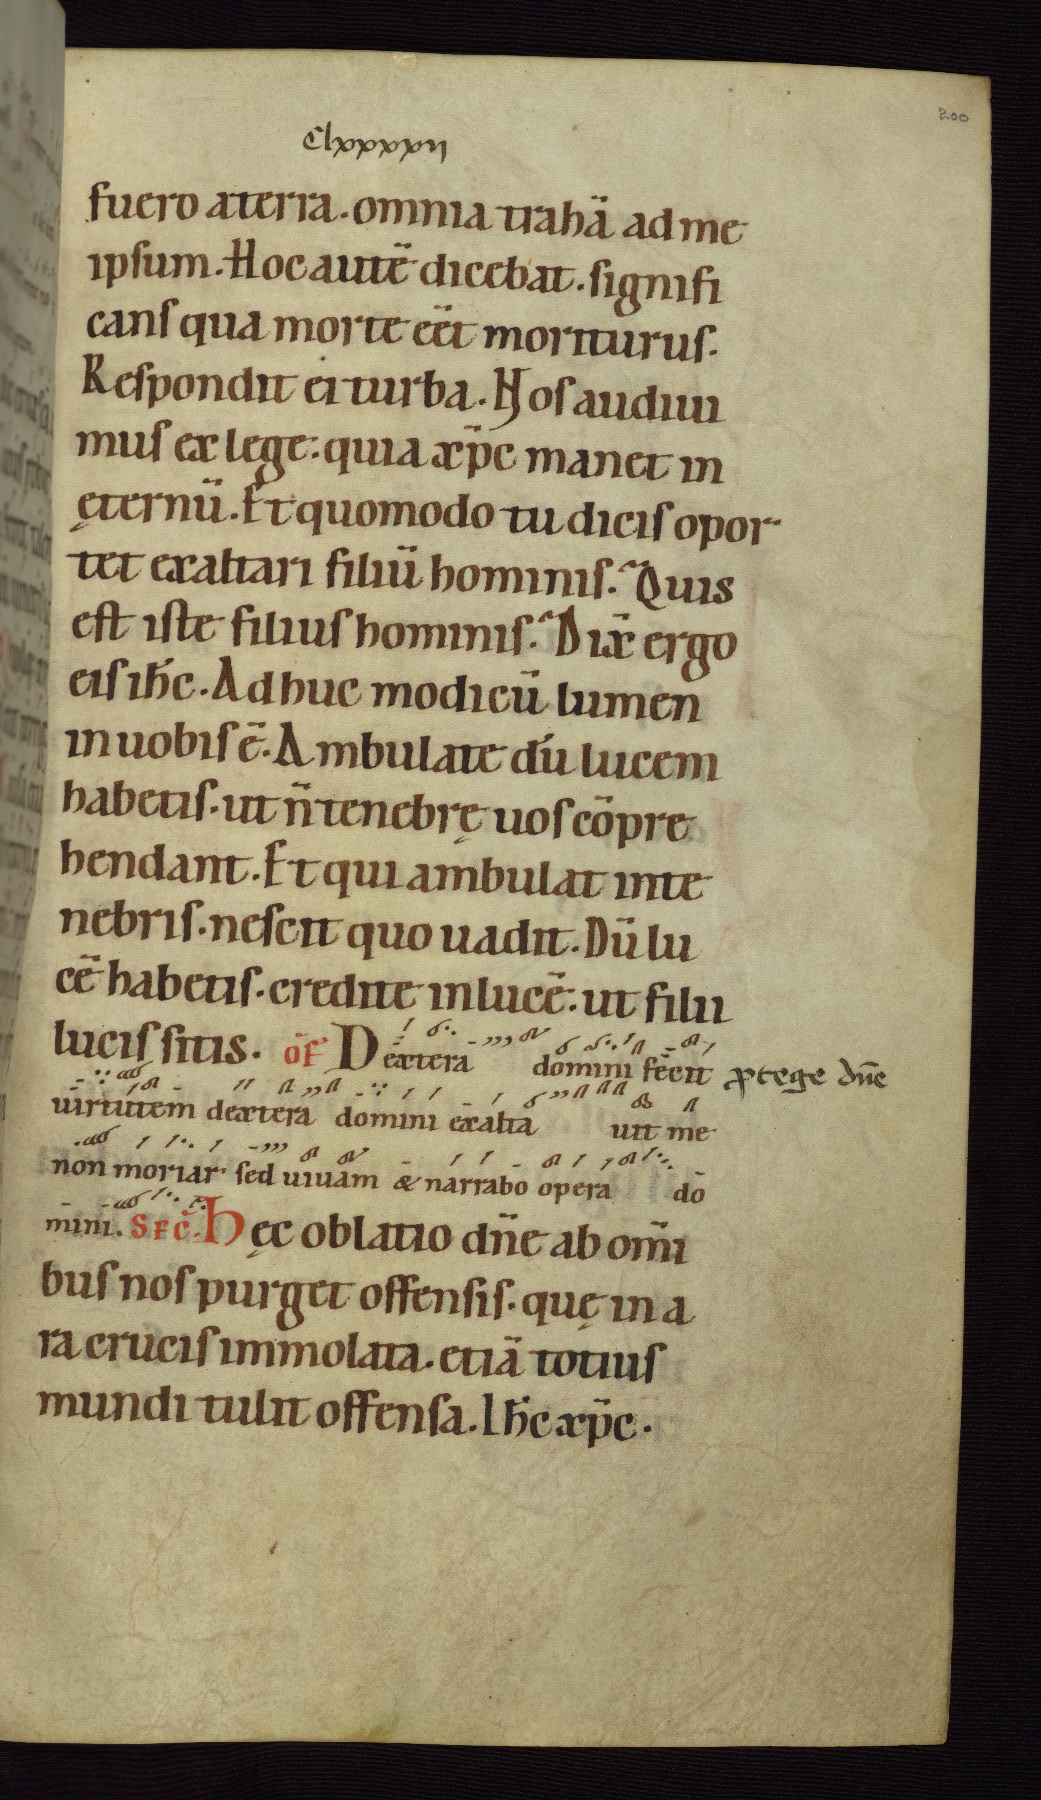 200
Clxxxxxii
fuero a terra. omnia trahā ad me
ipsum. Hoc autē dicebat. signifi
cans qua morte eēt moriturus.
Respondit ei turba. Nos audiui
mus ex lege: quia xp̄c manet in
ęternū. Et quomodo tu dicis opor
tet exaltari filiū hominis? Quis
est iste filius hominis? Dix̄ ergo
eis ih̄c. Adhuc modicū lumen
in uobis ē. Ambulate dū lucem
habetis. ut n̄ tenebrę uos cōpre
hendant. Et qui ambulat in te
nebris. nescit quo uadit. Dū lu
cē habetis. credite in lucē: ut filii
lucis sitis. of̄ Dextera domini fecit
ꝓtege dn̄e
uirtutem dextera domini exalta uit me
non moriar sed uiuam & narrabo opera do
mini. SEC̄. Hęc oblatio dn̄e ab om̄i
bus nos purget offensis. quę in a
ra crucis immolata. etiā totius
mundi tulit offensa. Ih̄c xp̄c.